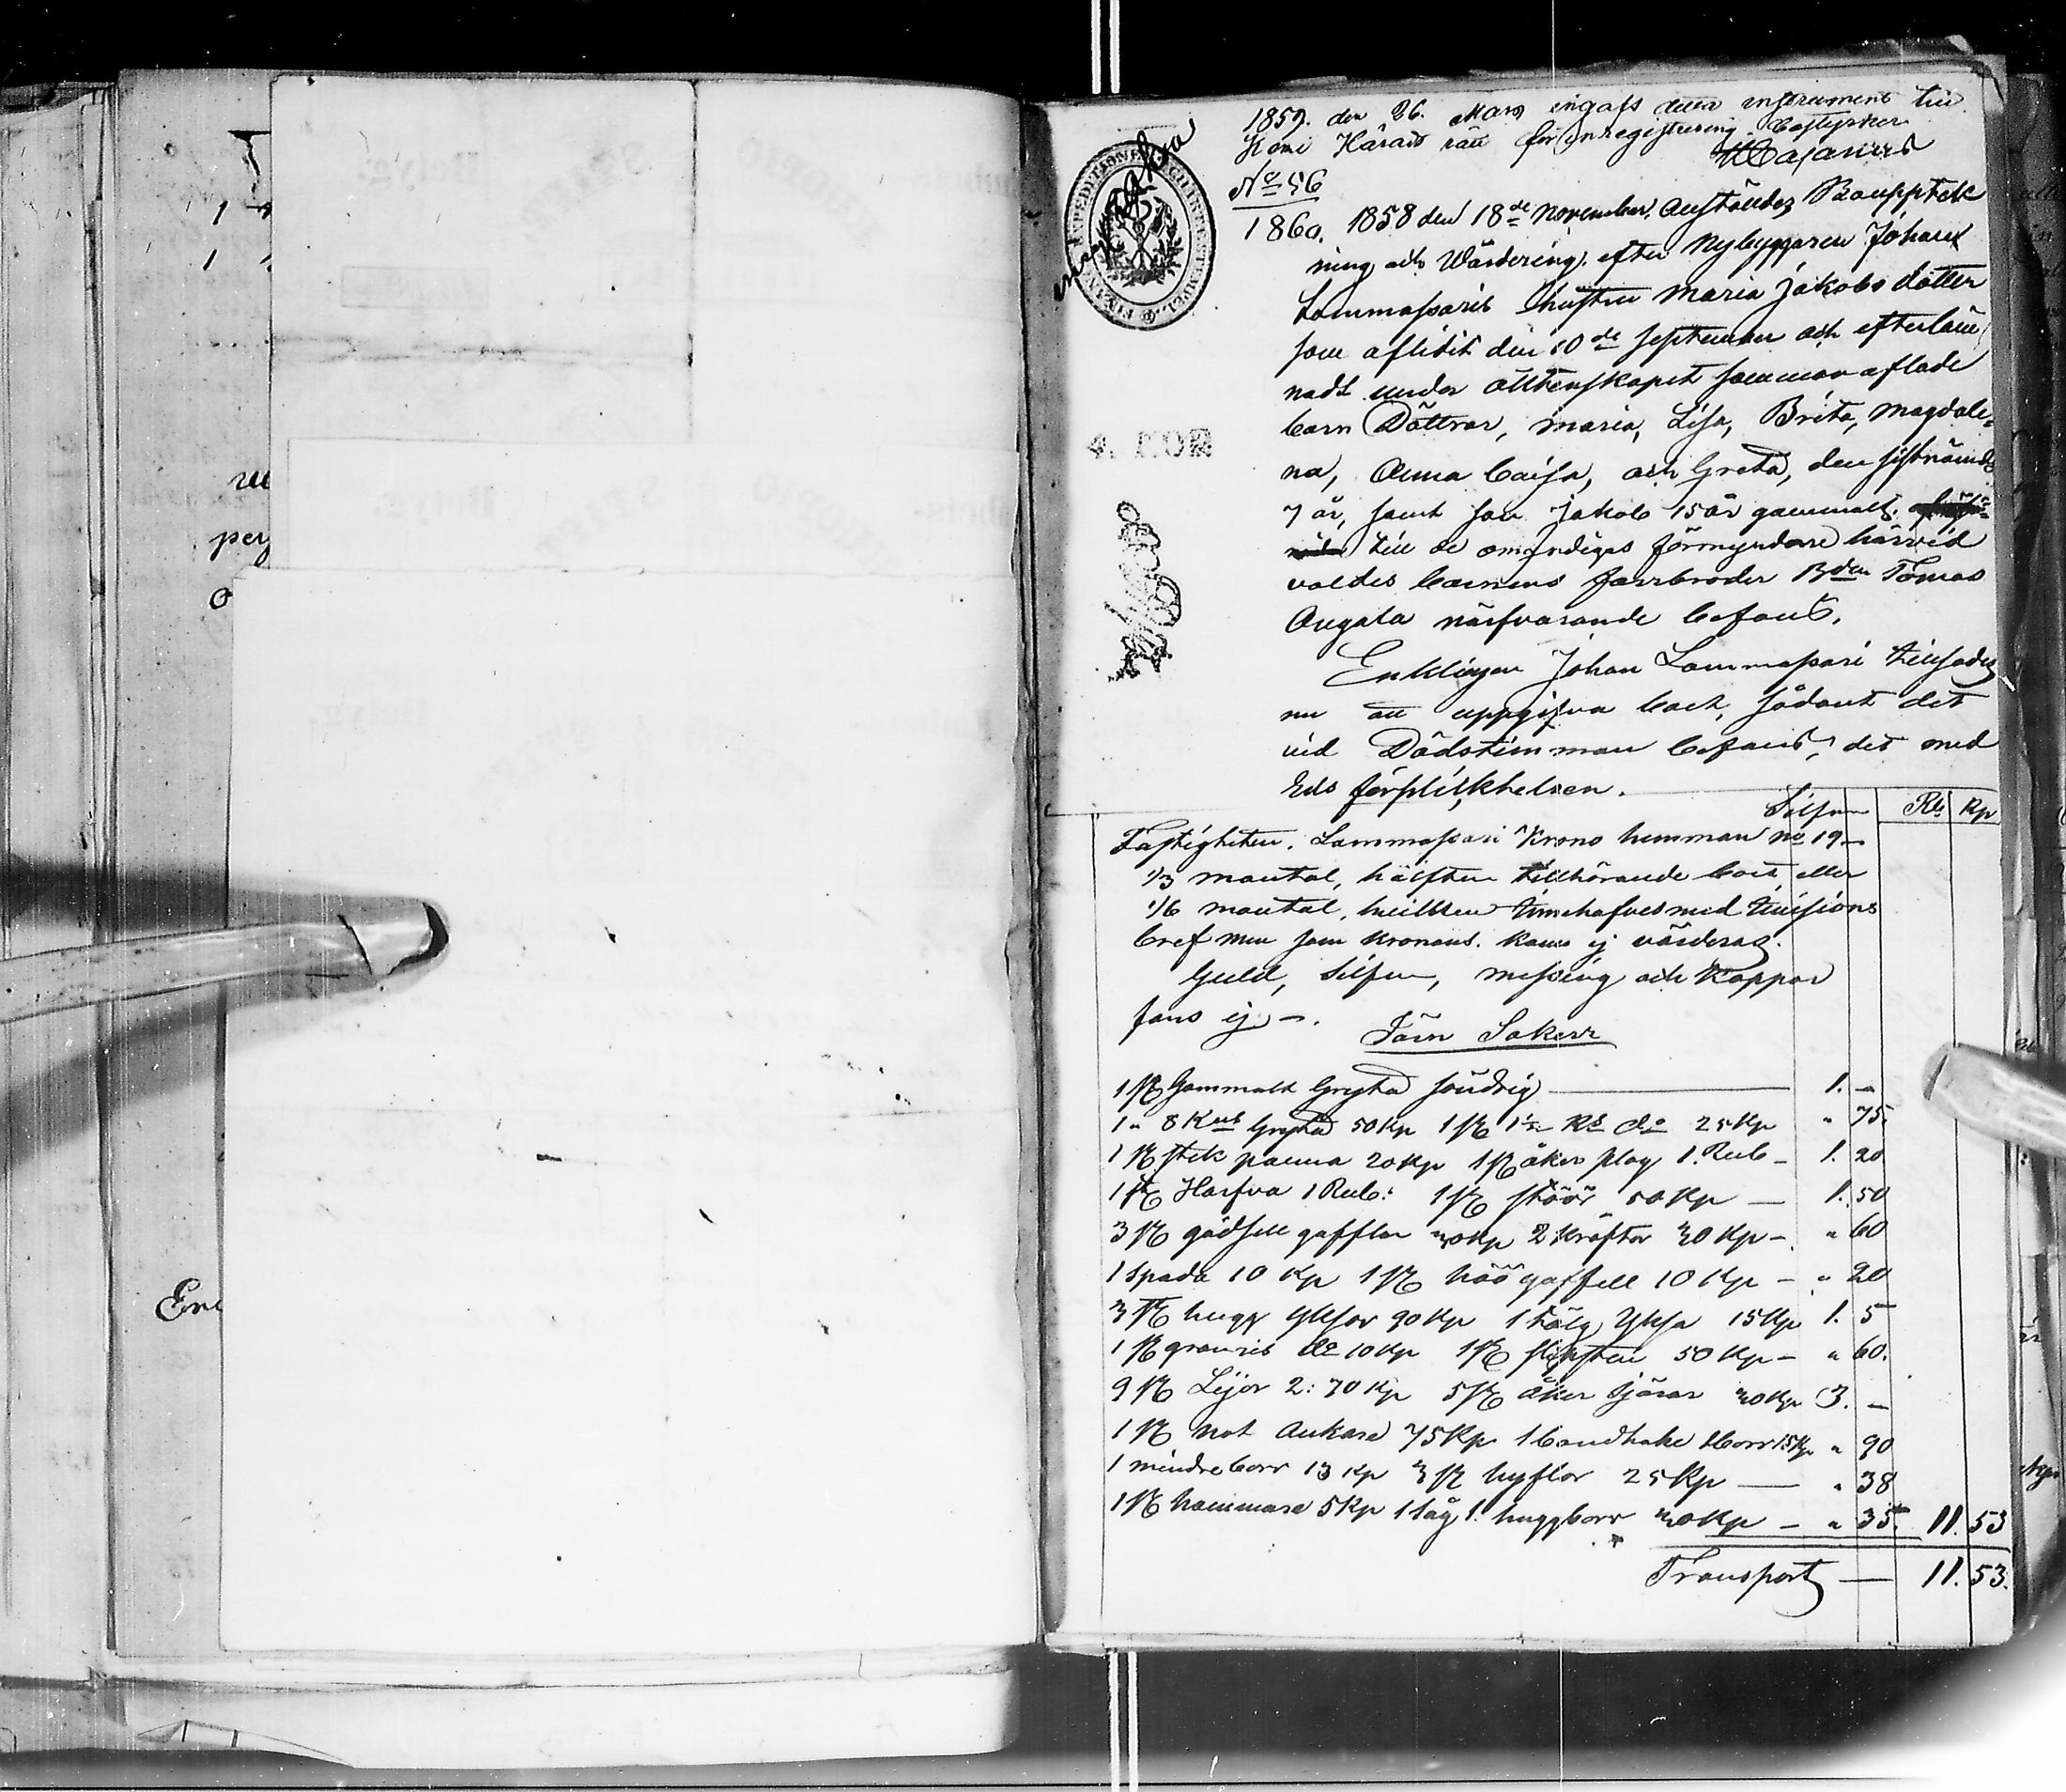 1859. den 26. Mars ingafs detta instrument till
Kemi Härads rätt för inregistrering. Bestyrker
MCajanus
No 56
1860. 1858 den 18de November, anställdes Bouppteck
ning och Wärdering efter Nybyggaren Johan
Lammasparis hustru Maria Jakobs dotter
som aflidit den 10de September och efterläm
nadt under äcktenskapet samman aflade
barn Döttrar, Maria, Lisa, Brita, Magdale=
na, Anna Caisa, och Greta, den sistnämde
7 år, samt son Jakob 15 år gammalt.
till de omyndigas förmyndare härvid
valdes barnens farbroder Bden Tomas
Angala närfvarande befants.
Enklingen Johan Lammaspari tillsades
nu att uppgifva boet, sådant det
vid Dödstimman befants, det med
Eds förplicktelsen.
Silfver Rb Kp
Fastigheten. Lammaspari Krono hemman no 19
1/3 mantal, hälften tillhörande boet, eller
1/6 mantal, hvilken innehafves med
bref men som Kronans. kans ej värderas.
Guld, Silfver, messing och Koppar
fans ej.
Järn Saker
1 st Gammalt Gryta söndrig 1. -
1 " 8 Kans Gryta 50 Kp 1 st do 25 Kp " 75.
1 st stek panna 20 Kp 1 st åker plog 1. Rub 1. 20
1 st Harfva 1 Rub: 1 st stöör 50 Kp 1. 50
3 st gödsell gafflar 30 Kp 2 kräftor 30 Kp " 60
1 Spada 10 Kp 1 st höö gaffell 10 Kp " 20
3 st hugg Yksor 90 Kp 1 tälg Yksa 15 Kp 1. 5
1 st do 10 Kp 1 st slipsten 50 Kp " 60.
9 st Lijor 2: 70 Kp 5 st åker skäror 30 Kp 3. -
1 st not ankare 75 Kp 1 bandhake 1 borr 15 Kp " 90
1 mindre borr 13 Kp 3 st hyflor 25 Kp " 38
1 st hammare 5 Kp 1 såg 1. huggborr 30 Kp " 35. 11. 53
Transport 11. 53.